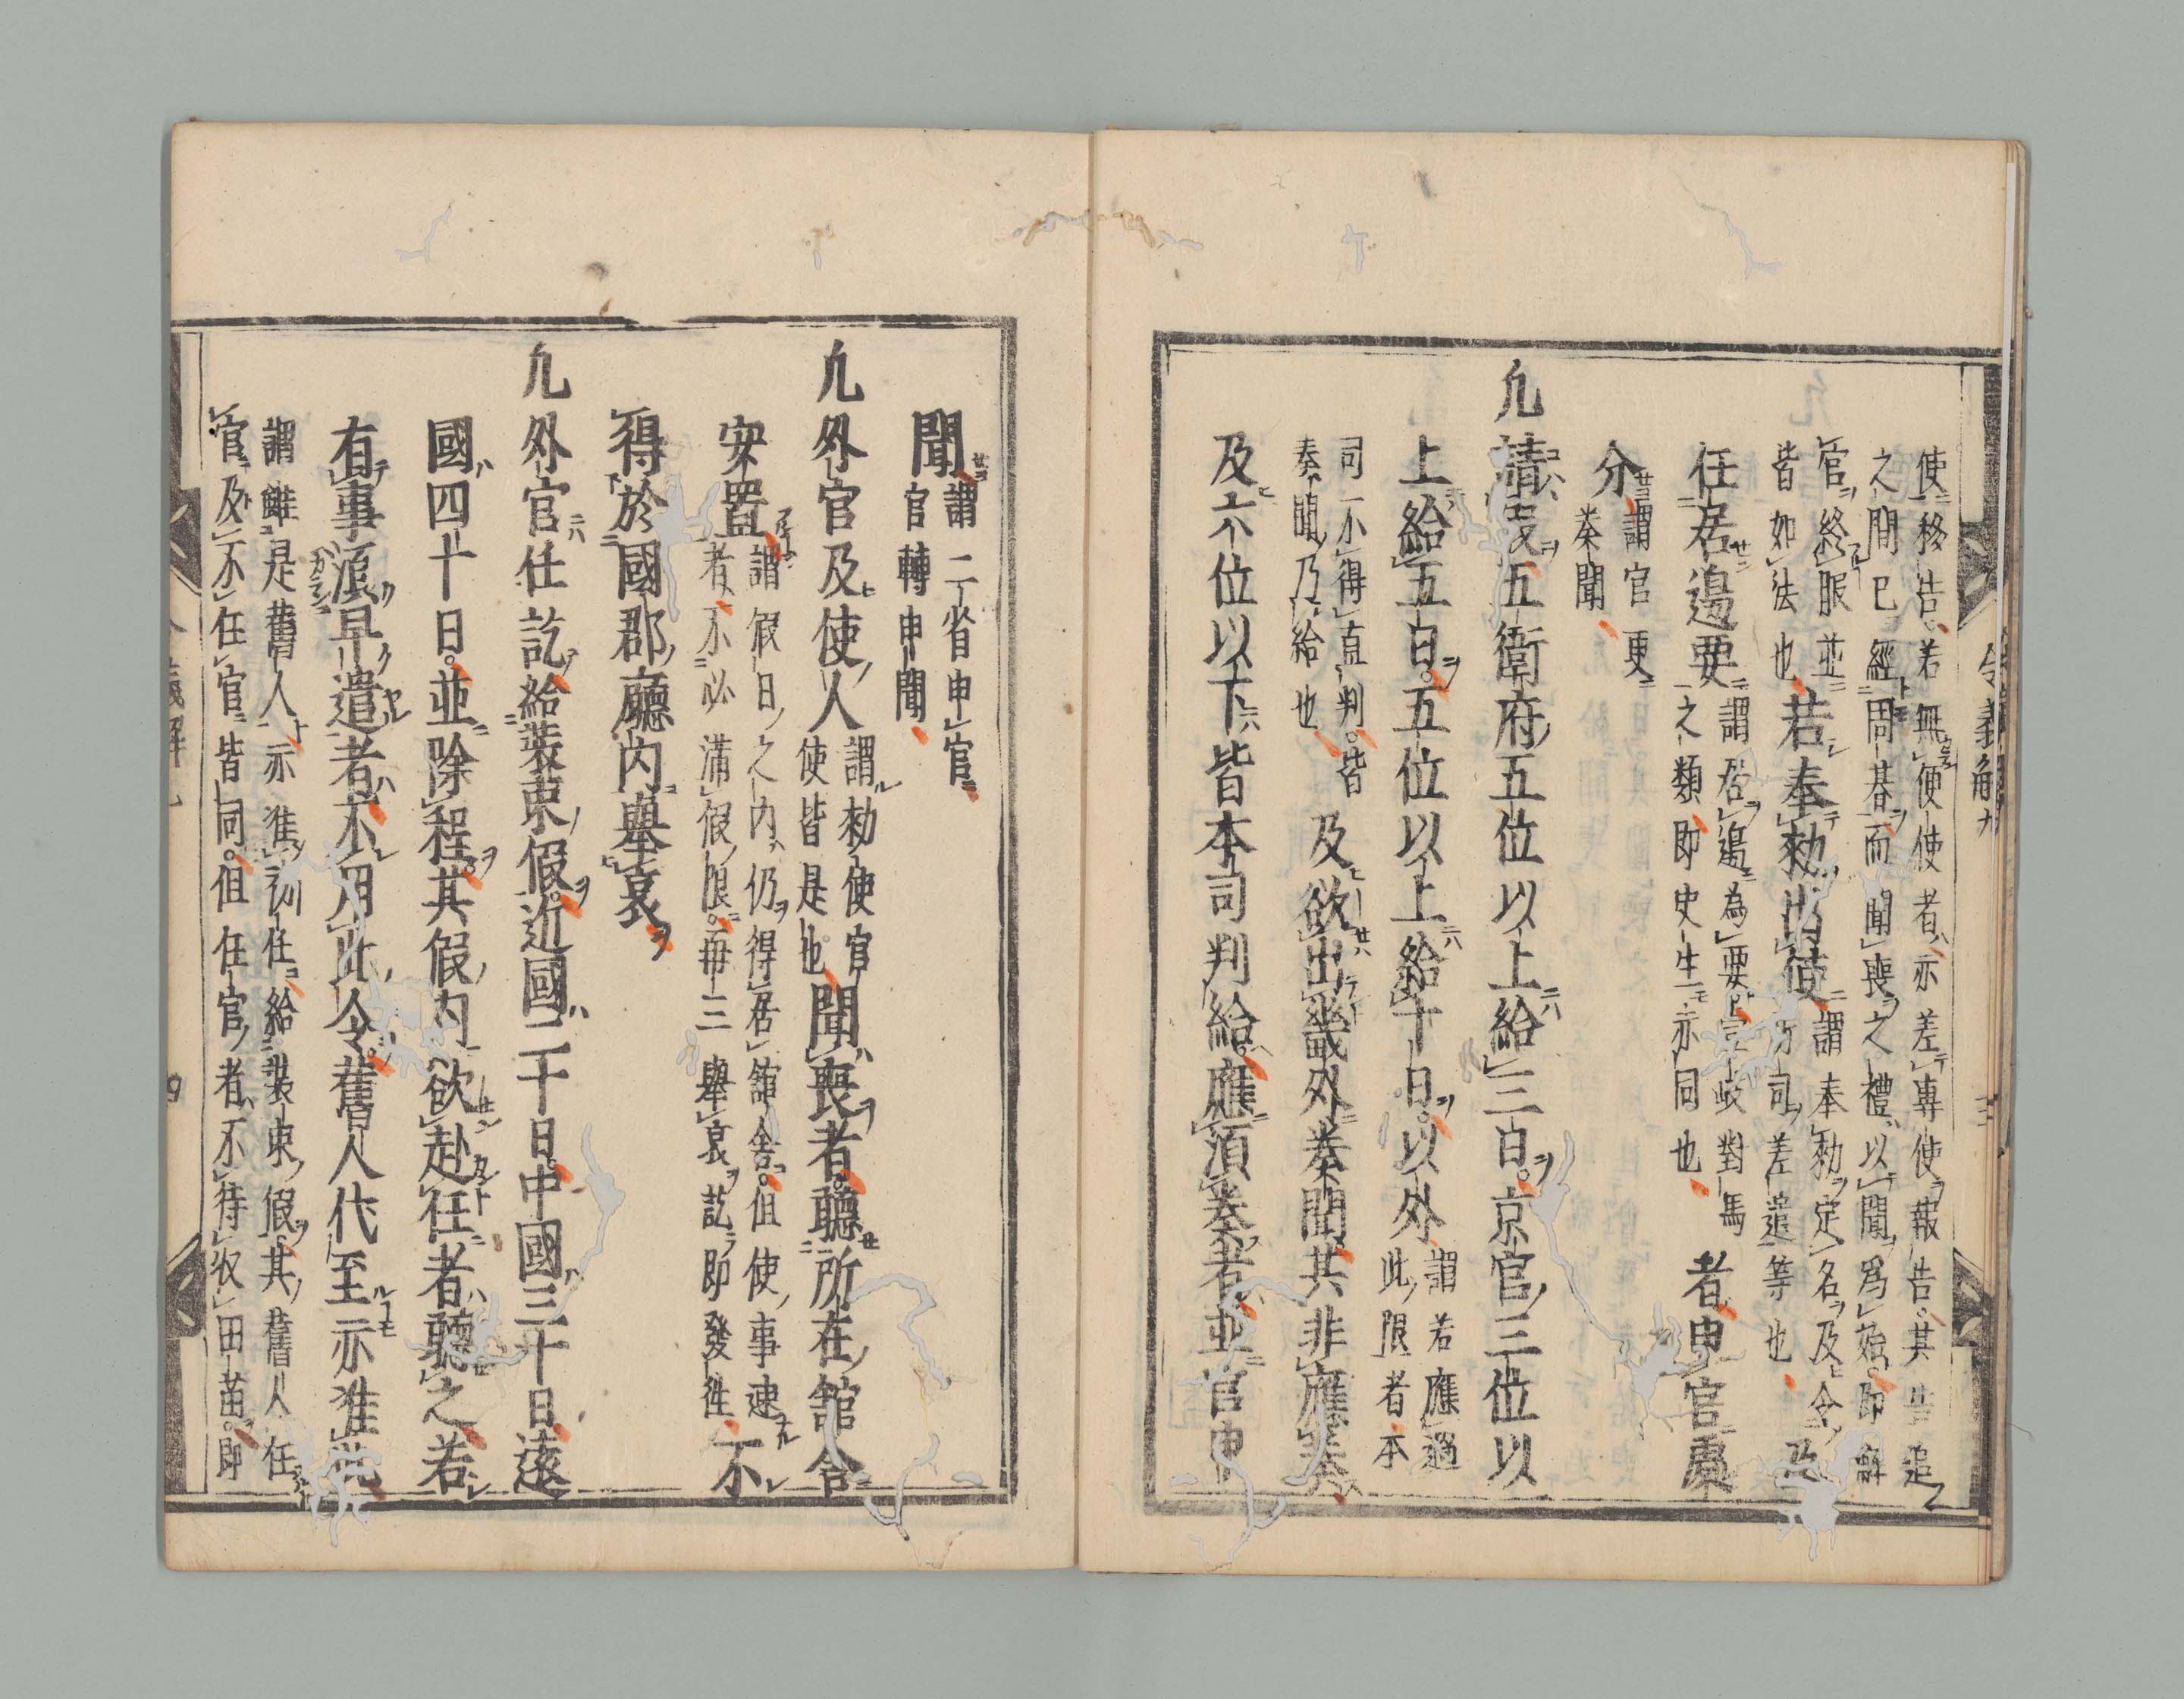 令義解九
使移告若無便使者亦差專使報告其告追
之間已經周朞而聞喪之禮以聞爲始即解
官終服並
皆如法也
若奉勅出使
謂奉勅定名及令
所司差遣等也
及
任居邊要
謂居邊爲要壹岐對馬
之類即史生亦同也
者申官處
分
謂官更
奏聞
凢請假五衛府五位以上給三日京官三位以
上給五日五位以上給十日以外
謂若應過
此限者本
司不得直判皆
奏聞乃給也
及欲出畿外奏聞其非應奏
及六位以下皆本司判給應須奏者並官申
聞
謂二省申官
官轉申聞
凢外官及使人
謂勅使官
使皆是也
聞喪者聽所在舘舍
安置
謂假日之內仍得居舘舍但使事速
者不必滿假限每三舉哀訖即發徃
不
得於國郡廳內舉哀
凢外官任訖給装束假近國二十日中國三十日遠
國四十日並除程其假內欲赴任者聽之若
有事須早遣者不用此令舊人代至亦准此
謂雖是舊人亦准初任給装束假其舊人任
官及不任官皆同但任官者不待収田苗即